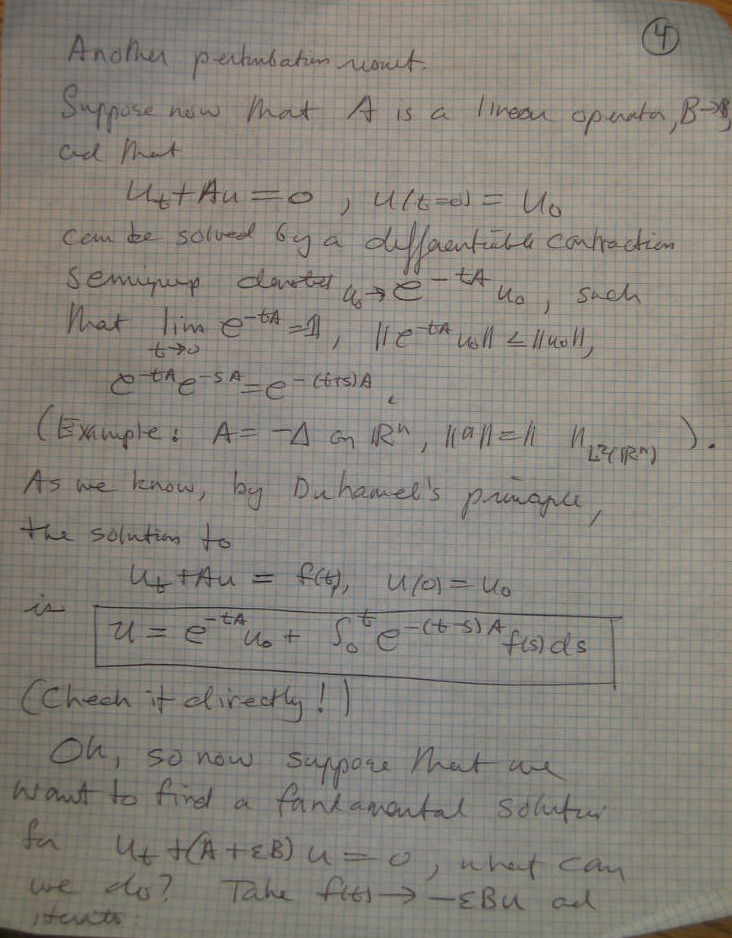 4
Another perturbation result.
Suppose now that A is a linear operator, B→B,
ad that
u_t + Au = 0 , u(t=0) = u_0
can be solved by a differentiable contraction
semigroup denoted u_0 → e^{-tA} u_0 , such
that lim_{t→0} e^{-tA} = 1, ||e^{-tA} u_0|| ≤ ||u_0||,
e^{-tA} e^{-sA} = e^{-(t+s)A}.
(Example: A = -Δ on ℝ^n, ||u|| = || ||_{L^2(ℝ^n)} ).
As we know, by Duhamel's principle,
the solution to
u_t + Au = f(t), u(0) = u_0
is u = e^{-tA} u_0 + ∫_0^t e^{-(t-s)A} f(s) ds
(Check it directly!)
Oh, so now suppose that we
want to find a fundamental solution
for u_t + (A + εB) u = 0 , what can
we do? Take f(t) → -εBu ad
iterate: